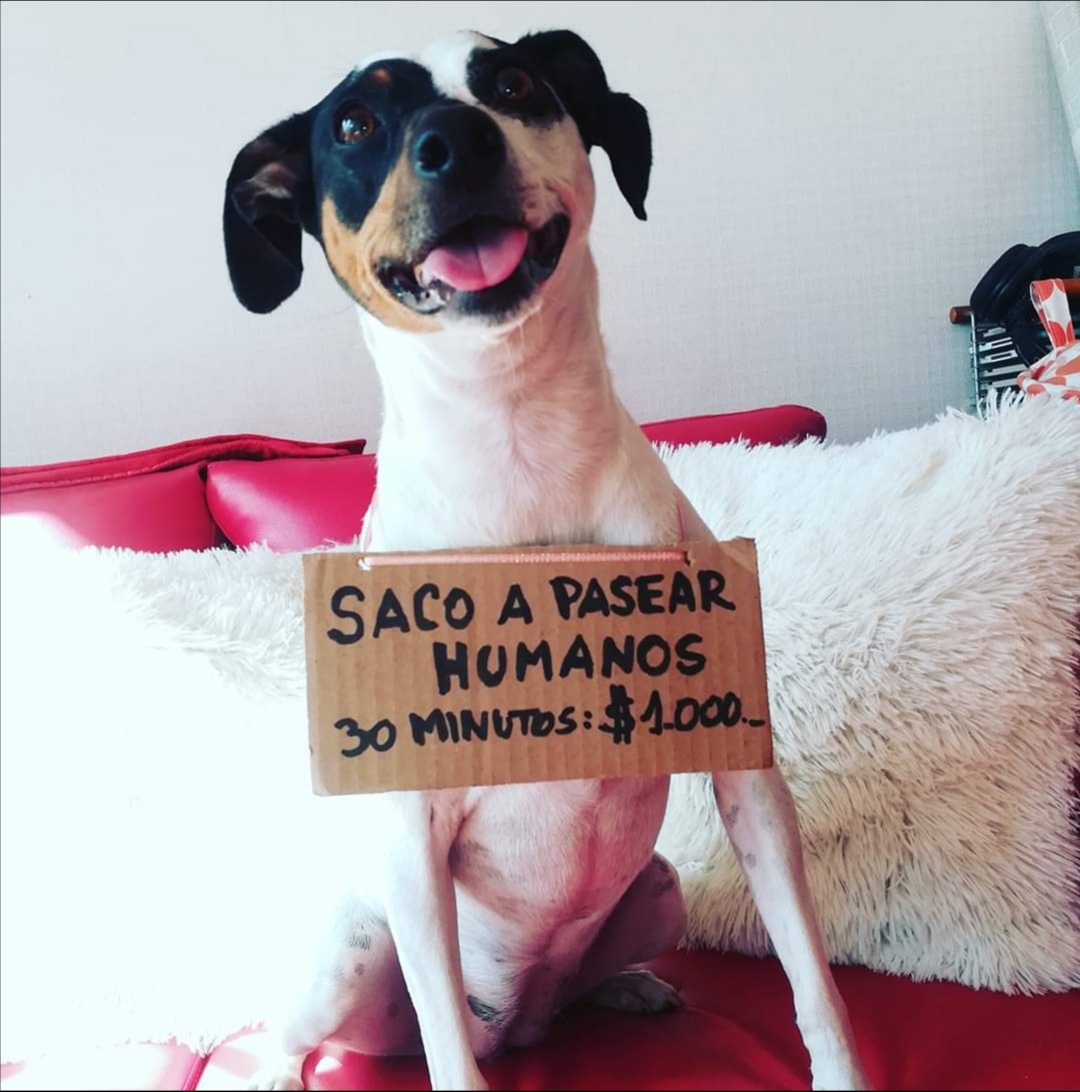 SACO A PASEAR
HUMANOS
30 MINUTOS: $1.000.-